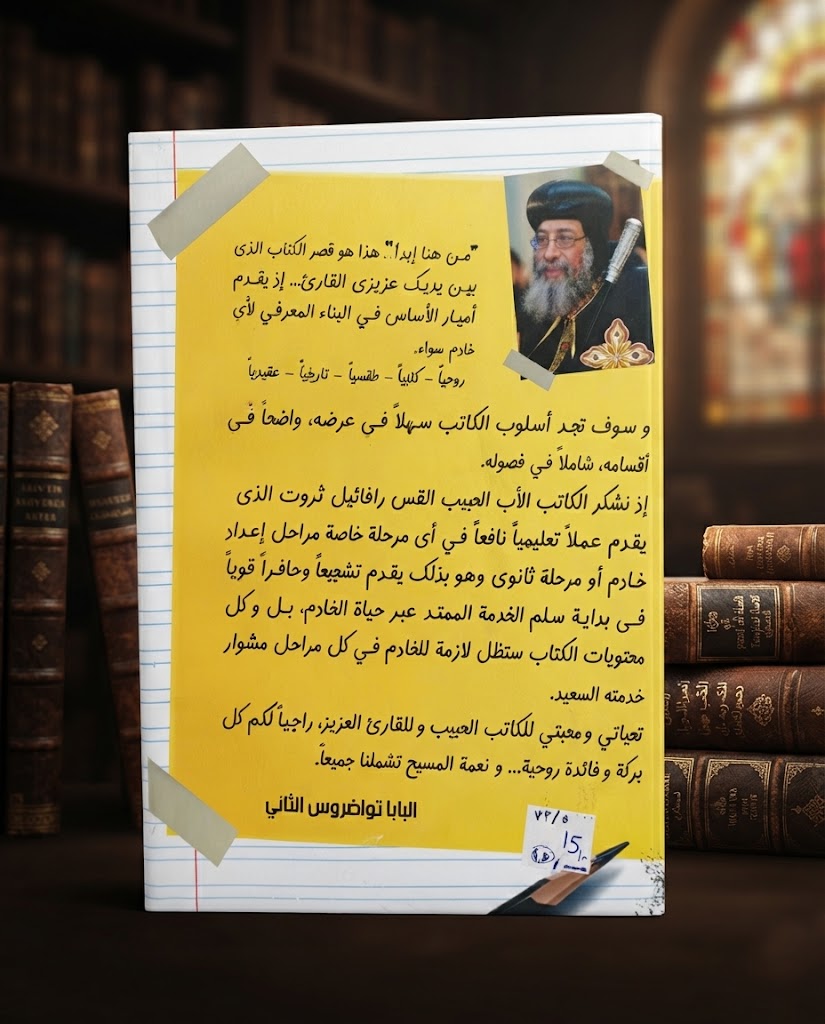 "من هنا إبدا" هذا هو قصر الكتاب الذى
بين يديك عزيزى القارئ... إذ يقدم
أميار الأساس في البناء المعرفي لأي
خادم سواء.
روحياً – كتابياً – طقسياً – تاريخياً – عقيدياً
و سوف تجد أسلوب الكاتب سهلاً في عرضه، واضحاً في
أقسامه، شاملاً في فصوله.
إذ نشكر الكاتب الأب الحبيب القس رافائيل ثروت الذى
يقدم عملاً تعليمياً نافعاً في أى مرحلة خاصة مراحل إعداد
خادم أو مرحلة ثانوى وهو بذلك يقدم تشجيعاً وحافزاً قوياً
فى بداية سلم الخدمة الممتد عبر حياة الخادم، بل وكل
محتويات الكتاب ستظل لازمة للخادم في كل مراحل مشوار
خدمته السعيد.
تحياتي و محبتي للكاتب الحبيب و للقارئ العزيز، راجياً لكم كل
بركة و فائدة روحية... و نعمة المسيح تشملنا جميعاً.
البابا تواضروس الثاني
٧٢/٥
15/-